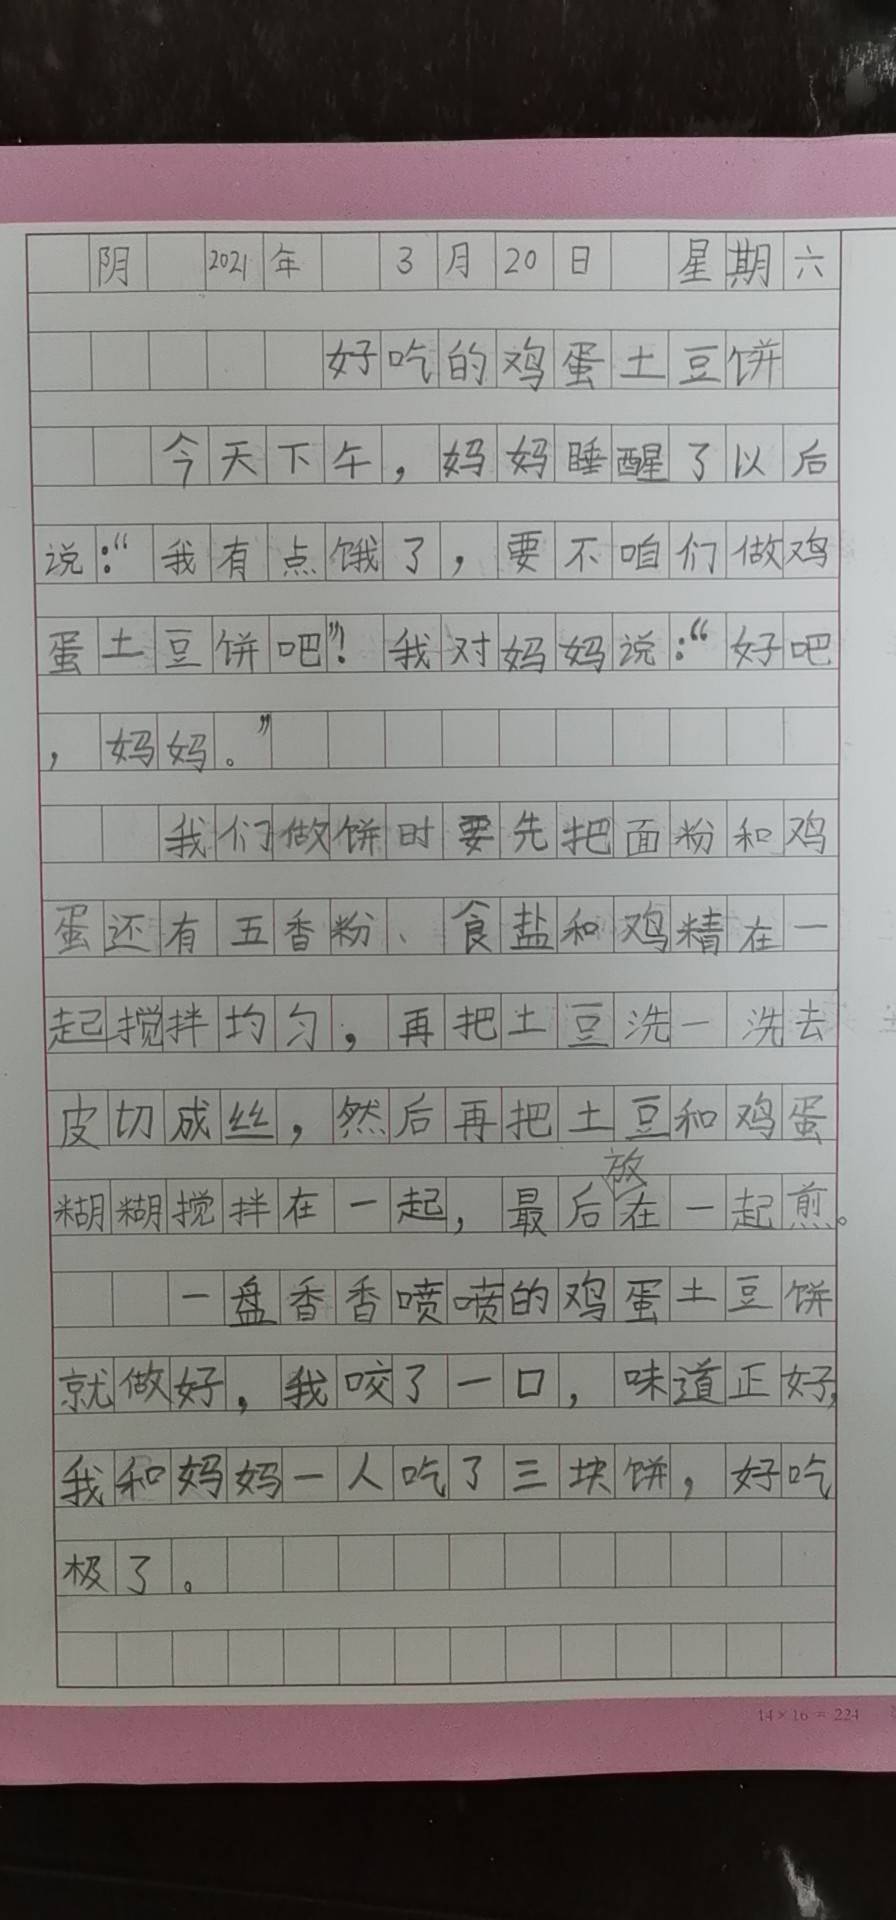 阴 2021年 3月20日 星期六
好吃的鸡蛋土豆饼
今天下午，妈妈睡醒了以后
说：“我有点饿了，要不咱们做鸡
蛋土豆饼吧”！我对妈妈说：“好吧
，妈妈。”
我们做饼时要先把面粉和鸡
蛋还有五香粉、食盐和鸡精在一
起搅拌均匀，再把土豆洗一洗去
皮切成丝，然后再把土豆和鸡蛋
糊糊搅拌在一起，最后放在一起煎。
一盘香香喷喷的鸡蛋土豆饼
就做好，我咬了一口，味道正好，
我和妈妈一人吃了三块饼，好吃
极了。
14×16=224